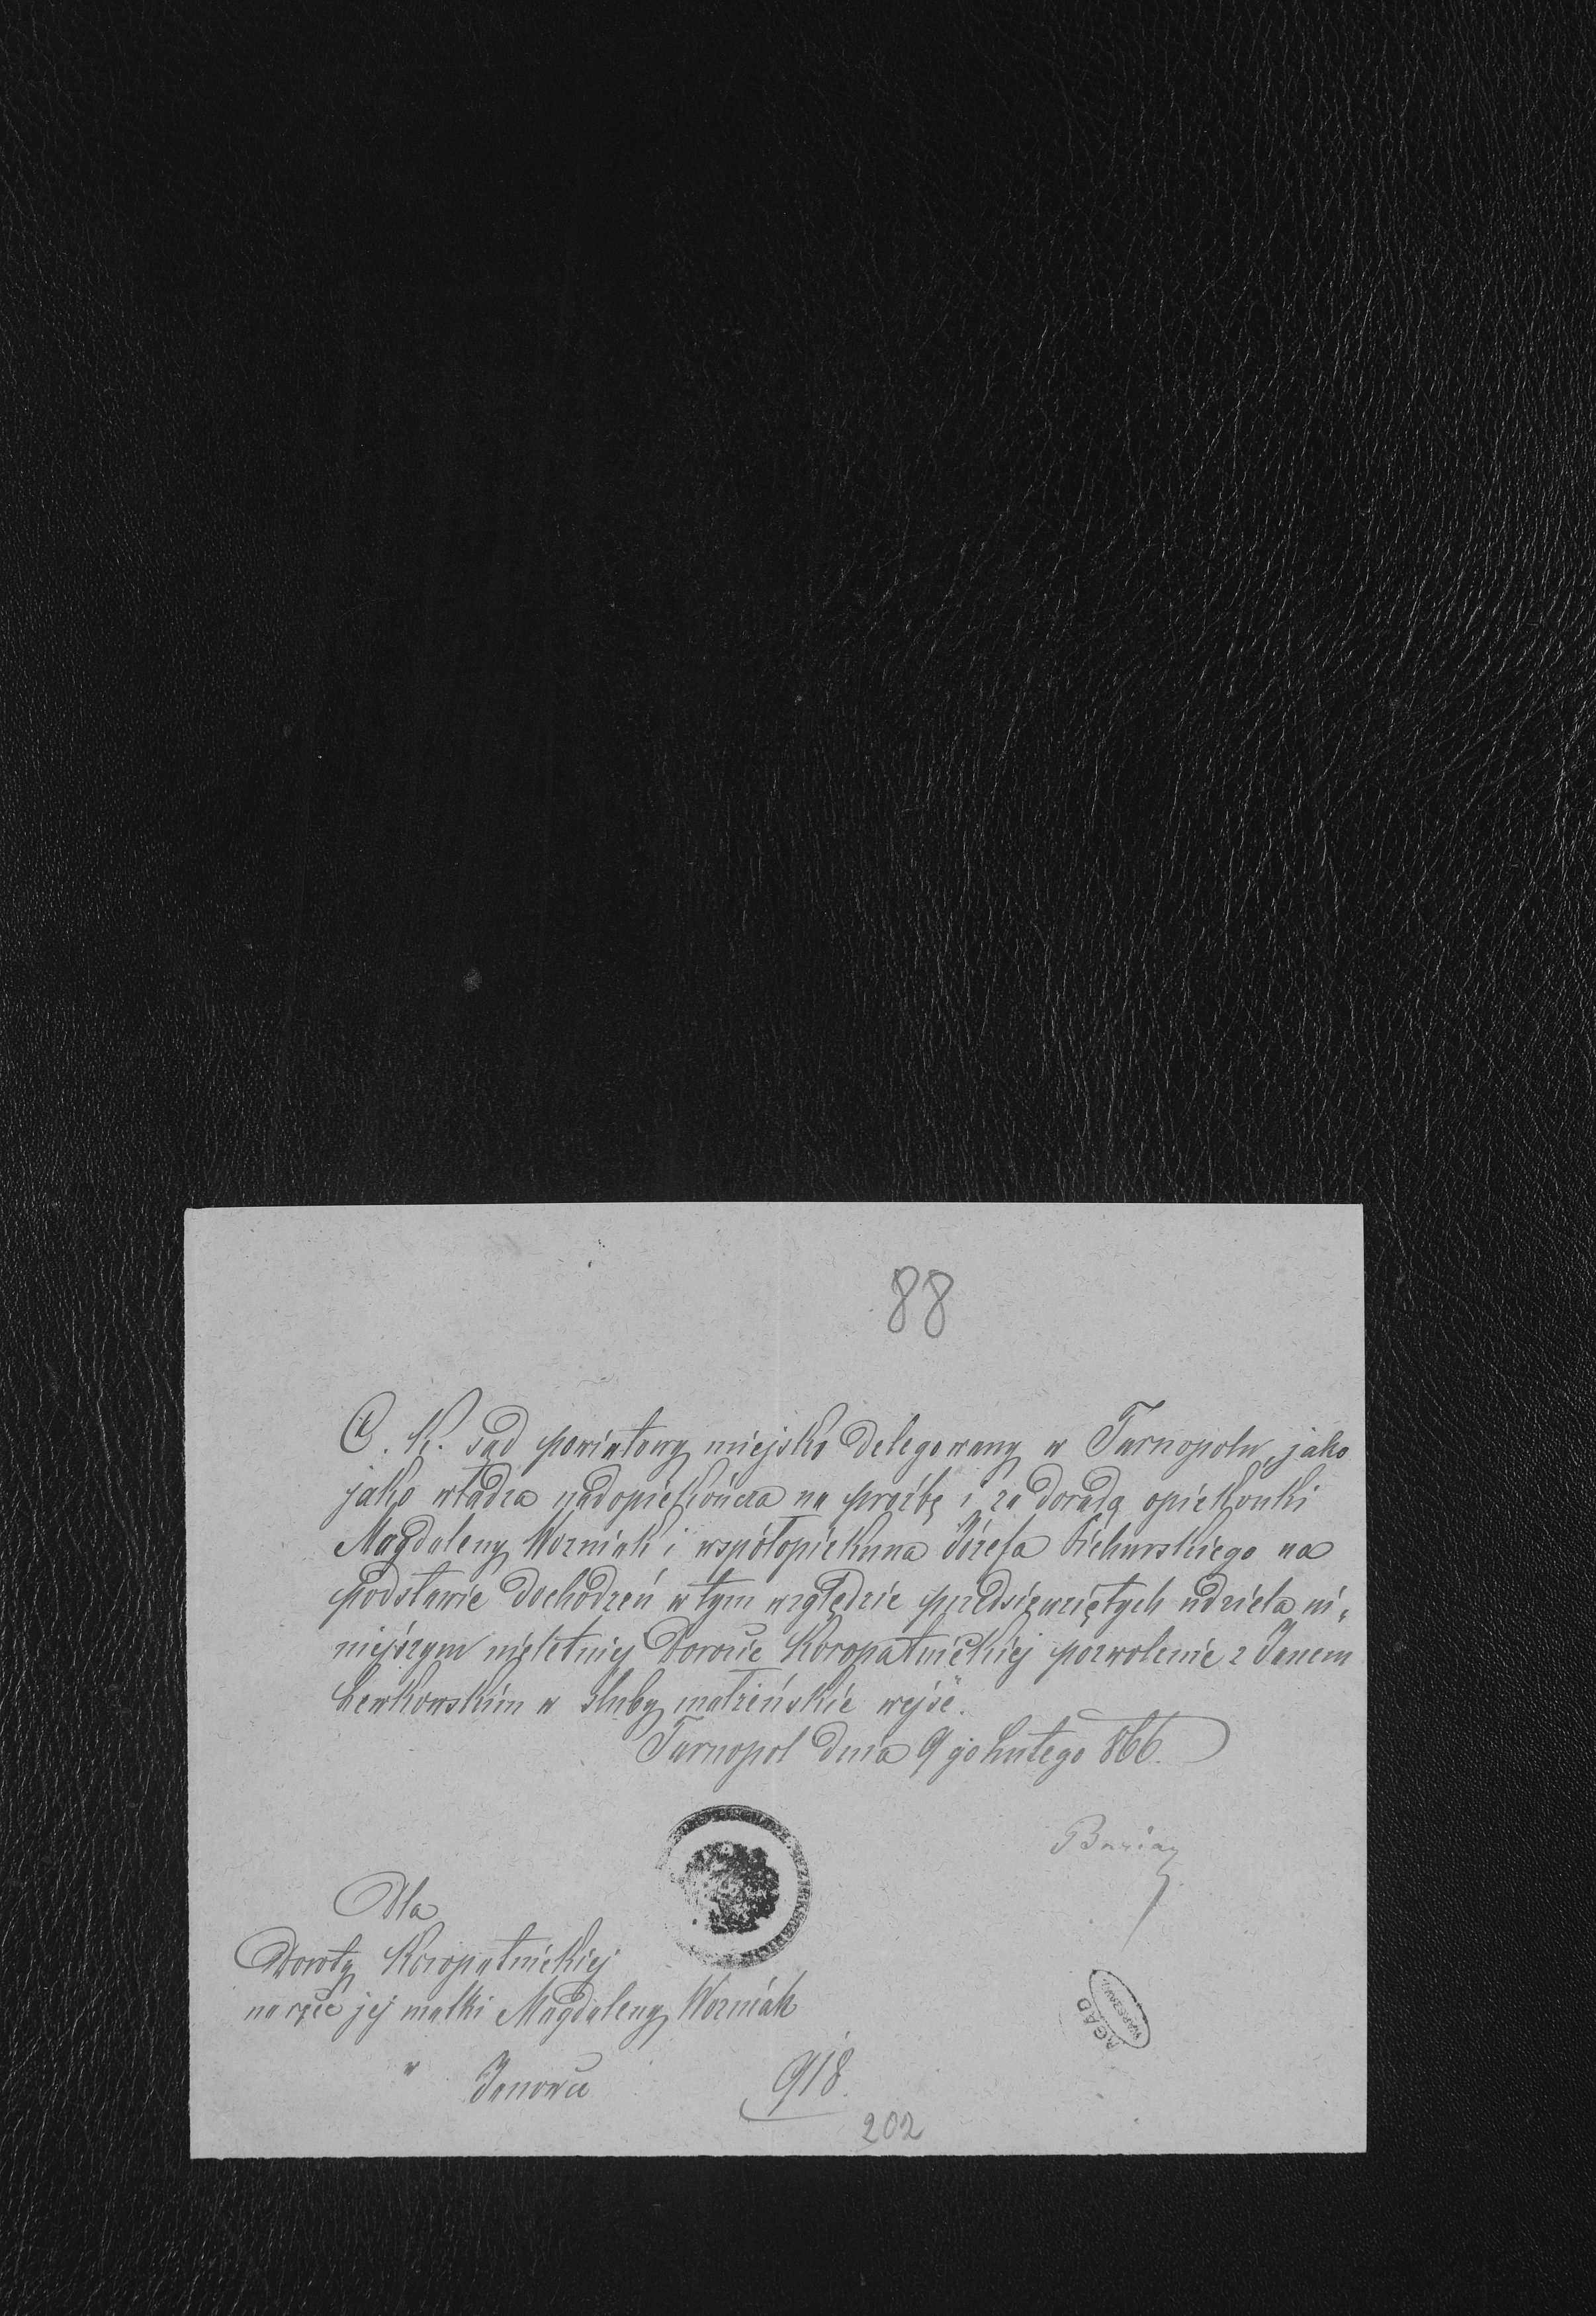 88
C. K. Sąd powiatowy miejsko delegowany w Tarnopolu, jako
jako władza nadopiekuńcza na prośbę i za doradą opiekunki
Magdaleny Wozniak i współopiekuna Józefa na
podstawie dochodzeń w tym względzie przedsięwziętych udziela ni„
niejszym nieletniej Dorocie Koropatnickiej pozwolenie z Janem
Lewkowskim w śluby małżeńskie wejść.
Tarnopol dnia 9go Lutego 866.
Dla
Doroty Koropatnickiej
na ręce jej matki Magdaleny Wozniak
w Janowce
918.
202
AGAD
WARSZAWA